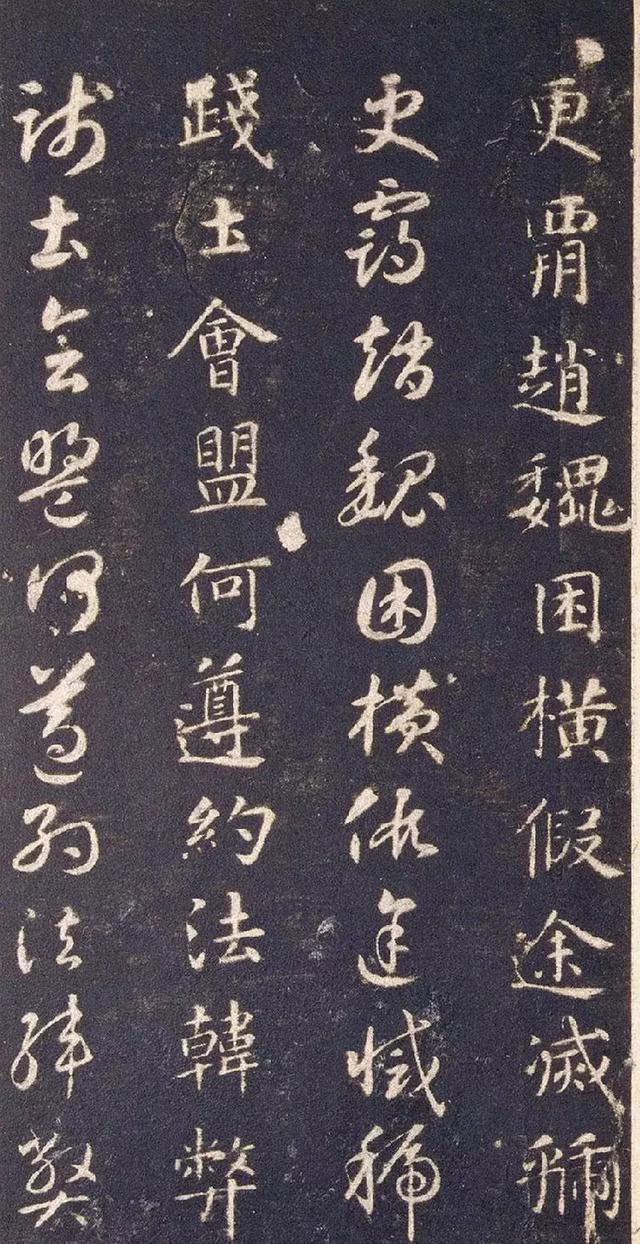 更霸趙魏困橫假途滅虢
更霸趙魏困橫假途滅虢
踐土會盟何遵約法韓弊
踐土會盟何遵約法韓弊